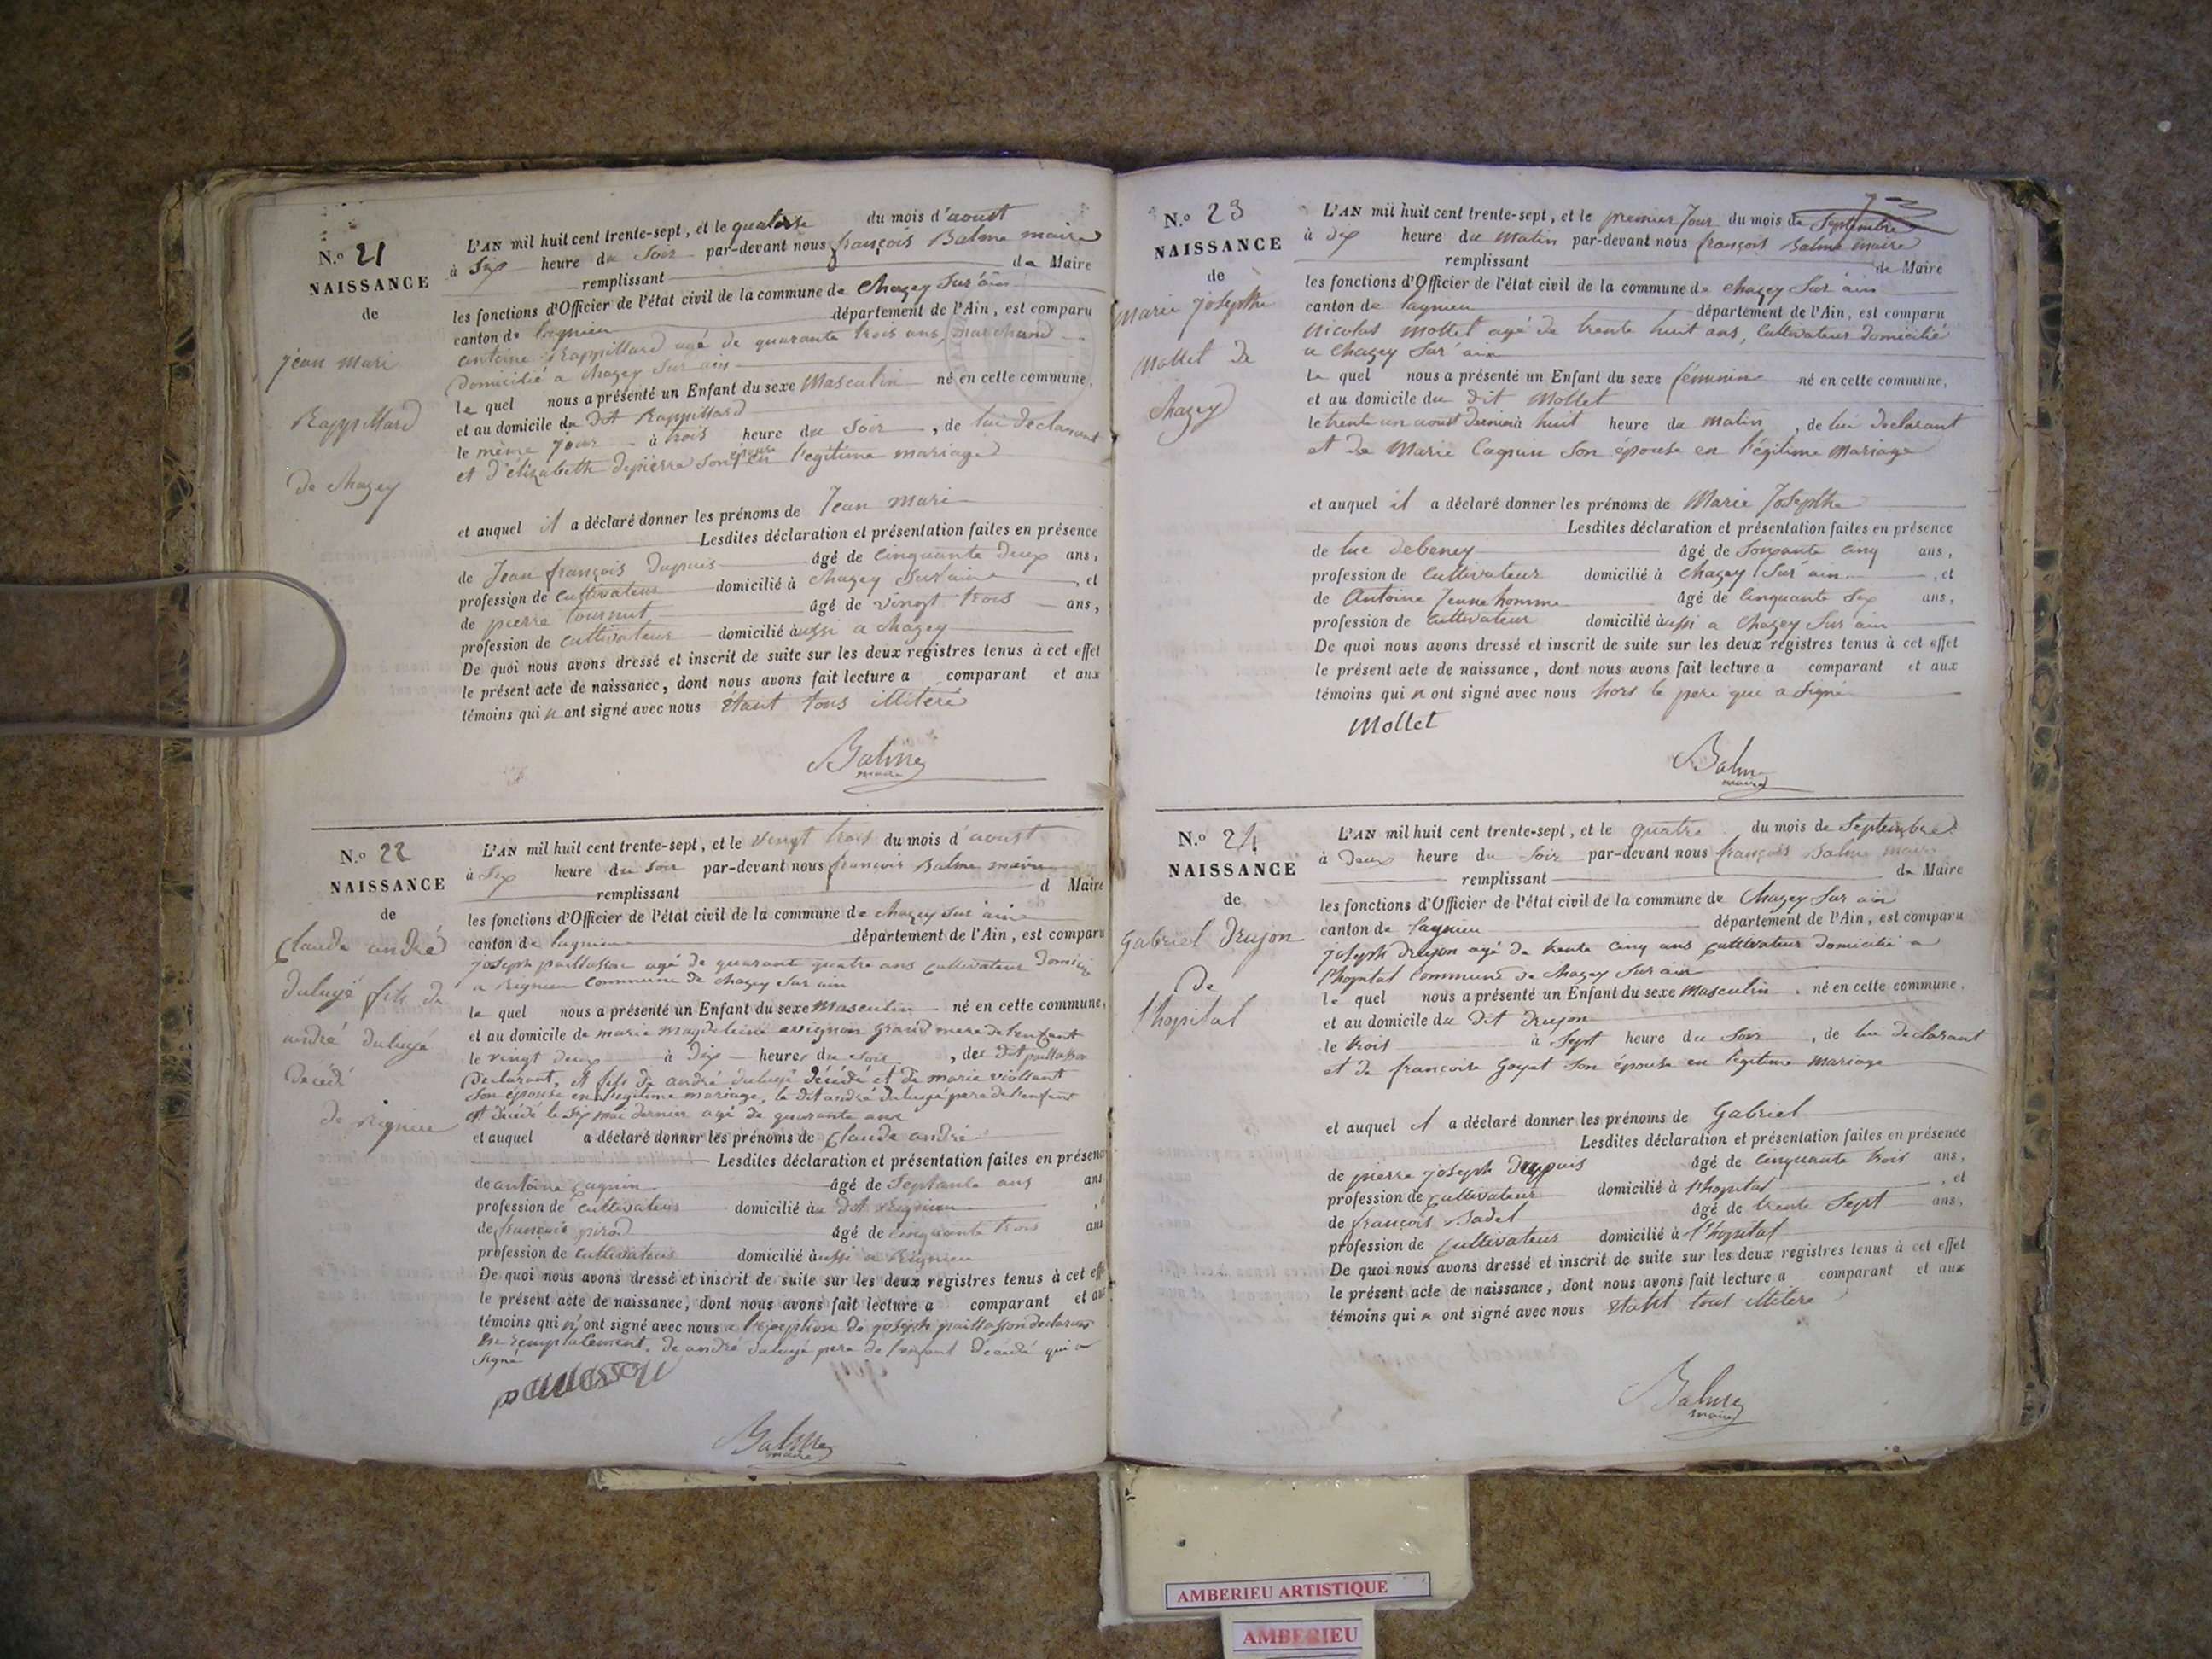 N.o 21
NAISSANCE
de
jean mari
Rappillard
de chazey
L'AN mil huit cent trente-sept, et le quatorse du mois d'aoust
à Six heure du Soir par-devant nous françois Balme maire
remplissant de Maire
les fonctions d'Officier de l'état civil de la commune de Chazey Sur ain
canton de lagnieu département de l'Ain, est comparu
antoine Rappillard agé de quarante trois ans, marchand
domicilié a chazey Sur ain
le quel nous a présenté un Enfant du sexe Masculin né en cette commune,
et au domicile du dit Rappillard
le même jour à trois heure du Soir, de lui declarant
et d'élizabeth depierre Son épouse en l'egitime mariage
et auquel il a déclaré donner les prénoms de Jean mari
Lesdites déclaration et présentation faites en présence
de Jean françois Dupuis âgé de Cinquante deux ans,
profession de Cultivateur domicilié à chazey Sur ain, et
de pierre tournut âgé de vingt trois ans,
profession de cultivateur domicilié àussi a chazey
De quoi nous avons dressé et inscrit de suite sur les deux registres tenus à cet effet
le présent acte de naissance, dont nous avons fait lecture a comparant et aux
témoins qui n ont signé avec nous étant tous illiteré
Balme
maire
N.o 22
NAISSANCE
de
Claude andré
duluyé fils de
andré duluyé
décédé
de rignieu
L'AN mil huit cent trente-sept, et le vingt trois du mois d'aoust
à Six heure du soir par-devant nous françois Balme maire
remplissant d Maire
les fonctions d'Officier de l'état civil de la commune de chazey sur ain
canton de lagnieu département de l'Ain, est comparu
joseph paillasson agé de quarante quatre ans cultivateur domicilié
a Rignieu Commune de chazey Sur ain
le quel nous a présenté un Enfant du sexe Masculin né en cette commune,
et au domicile de marie magdeleine avignon grand mere de l'enfant
le vingt deux à dix heures du soir, de dit paillasson
declarant, et fils de andré duluyé décédé et de marie viollant
Son épouse en l'egitime mariage, le dit andré duluyé pere de l'enfant
est décédé le Six mai dernier agé de quarante ans
et auquel a déclaré donner les prénoms de Claude andré
Lesdites déclaration et présentation faites en présence
de antoine cagnin âgé de Septante ans ans
profession de cultivateur domicilié au dit Rignieu
de françois pirod âgé de cinquante trois ans
profession de cultivateur domicilié àussi a Rignieu
De quoi nous avons dressé et inscrit de suite sur les deux registres tenus à cet effet
le présent acte de naissance, dont nous avons fait lecture a comparant et aux
témoins qui n'ont signé avec nous a l'exception de joseph paillasson declarant
en remplacement de andré duluyé pere de l'enfant décédé qui a
Signé
paillasson
Balme
maire
N.o 23
NAISSANCE
de
Marie josephte
Mollet de
chazey
L'AN mil huit cent trente-sept, et le premier Jour du mois de Septembre
à dix heure du matin par-devant nous françois Balme maire
remplissant de Maire
les fonctions d'Officier de l'état civil de la commune de chazey Sur ain
canton de lagnieu département de l'Ain, est comparu
nicolas Mollet agé de trente huit ans, Cultivateur domicilié
a chazey Sur ain
Le quel nous a présenté un Enfant du sexe féminin né en cette commune,
et au domicile du dit Mollet
le trente un aoust dernier à huit heure du Matin, de lui declarant
et de Marie Cagnin Son épouse en l'égitime Mariage
et auquel il a déclaré donner les prénoms de Marie Josephte
Lesdites déclaration et présentation faites en présence
de luc debeney âgé de Soixante cinq ans,
profession de Cultivateur domicilié à chazey Sur ain, et
de Antoine Jeunehomme âgé de Cinquante Six ans,
profession de cultivateur domicilié àussi a Chazey Sur ain
De quoi nous avons dressé et inscrit de suite sur les deux registres tenus à cet effet
le présent acte de naissance, dont nous avons fait lecture a comparant et aux
témoins qui n ont signé avec nous hors le pere que a Signé
Mollet
Balme
maire
N.o 24
NAISSANCE
de
Gabriel drujon
De
l'hopital
L'AN mil huit cent trente-sept, et le quatre du mois de Septembre
à Deux heure du Soir par-devant nous françois Balme maire
remplissant de Maire
les fonctions d'Officier de l'état civil de la commune de Chazey Sur ain
canton de lagnieu département de l'Ain, est comparu
joseph drujon agé de trente cinq ans cultivateur domicilié a
l'hopital commune de chazey Sur ain
le quel nous a présenté un Enfant du sexe Masculin né en cette commune,
et au domicile du dit drujon
le trois à Sept heure du Soir, de lui declarant
et de francoise Goyet Son épouse en légitime mariage
et auquel il a déclaré donner les prénoms de Gabriel
Lesdites déclaration et présentation faites en présence
de pierre joseph Dupuis âgé de Cinquante trois ans,
profession de cultivateur domicilié à l'hopital, et
de françois Badel âgé de trente Sept ans,
profession de Cultivateur domicilié à l'hopital
De quoi nous avons dressé et inscrit de suite sur les deux registres tenus à cet effet
le présent acte de naissance, dont nous avons fait lecture a comparant et aux
témoins qui n ont signé avec nous étant tous illiteré
Balme
maire
AMBERIEU ARTISTIQUE
AMBERIEU